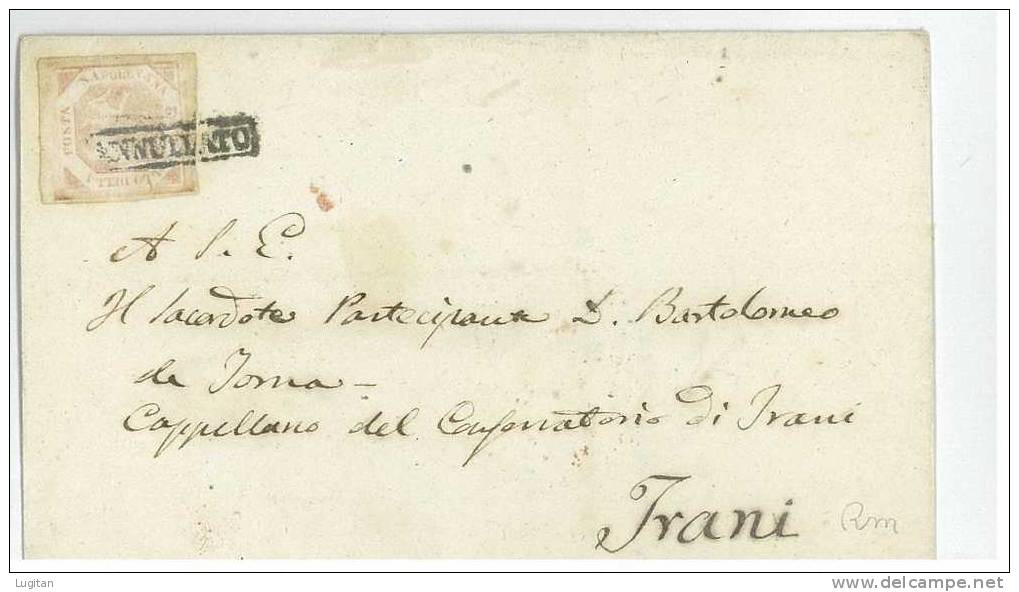 POSTA NAPOLETANA
ANNULLATO
A S. E.
Il Sacerdote Partecipante D. Bartolomeo
de Toma –
Cappellano del Conservatorio di Trani
Trani
Rm
Lugitan
www.delcampe.net